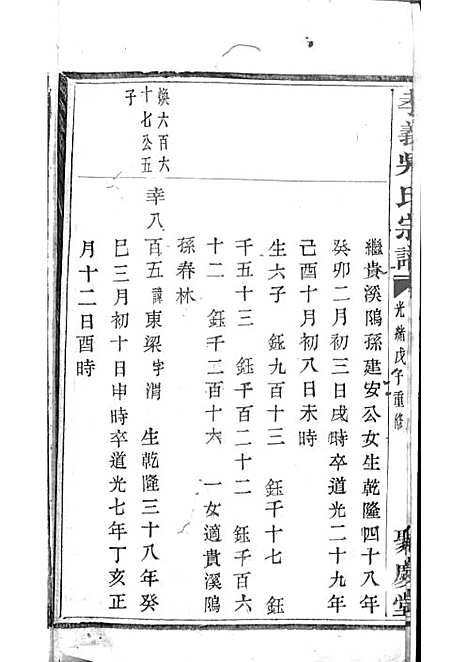 孝義吳氏宗譜
光緒戊子重修
聚慶堂
繼貴溪隝孫建安公女生乾隆四十八年
癸卯二月初三日戌時卒道光二十九年
己酉十月初八日未時
生六子 鈺九百十三 鈺千十七 鈺
千五十三 鈺千百二十二 鈺千百六
十二 鈺千二百十六 一女適貴溪隝
孫春林
煥六百六
十七公五
子
幸八百五諱東梁字渭 生乾隆三十八年癸
巳三月初十日申時卒道光七年丁亥正
月十二日酉時